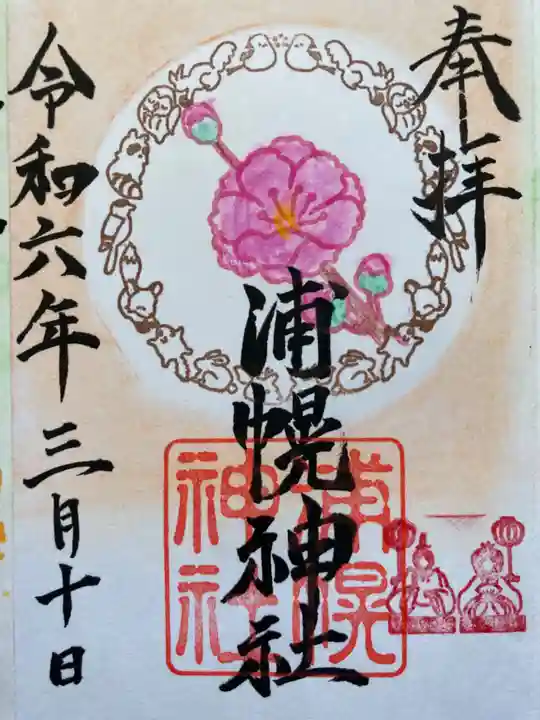 奉拝
浦幌神社
浦幌
神社
令和六年三月十日